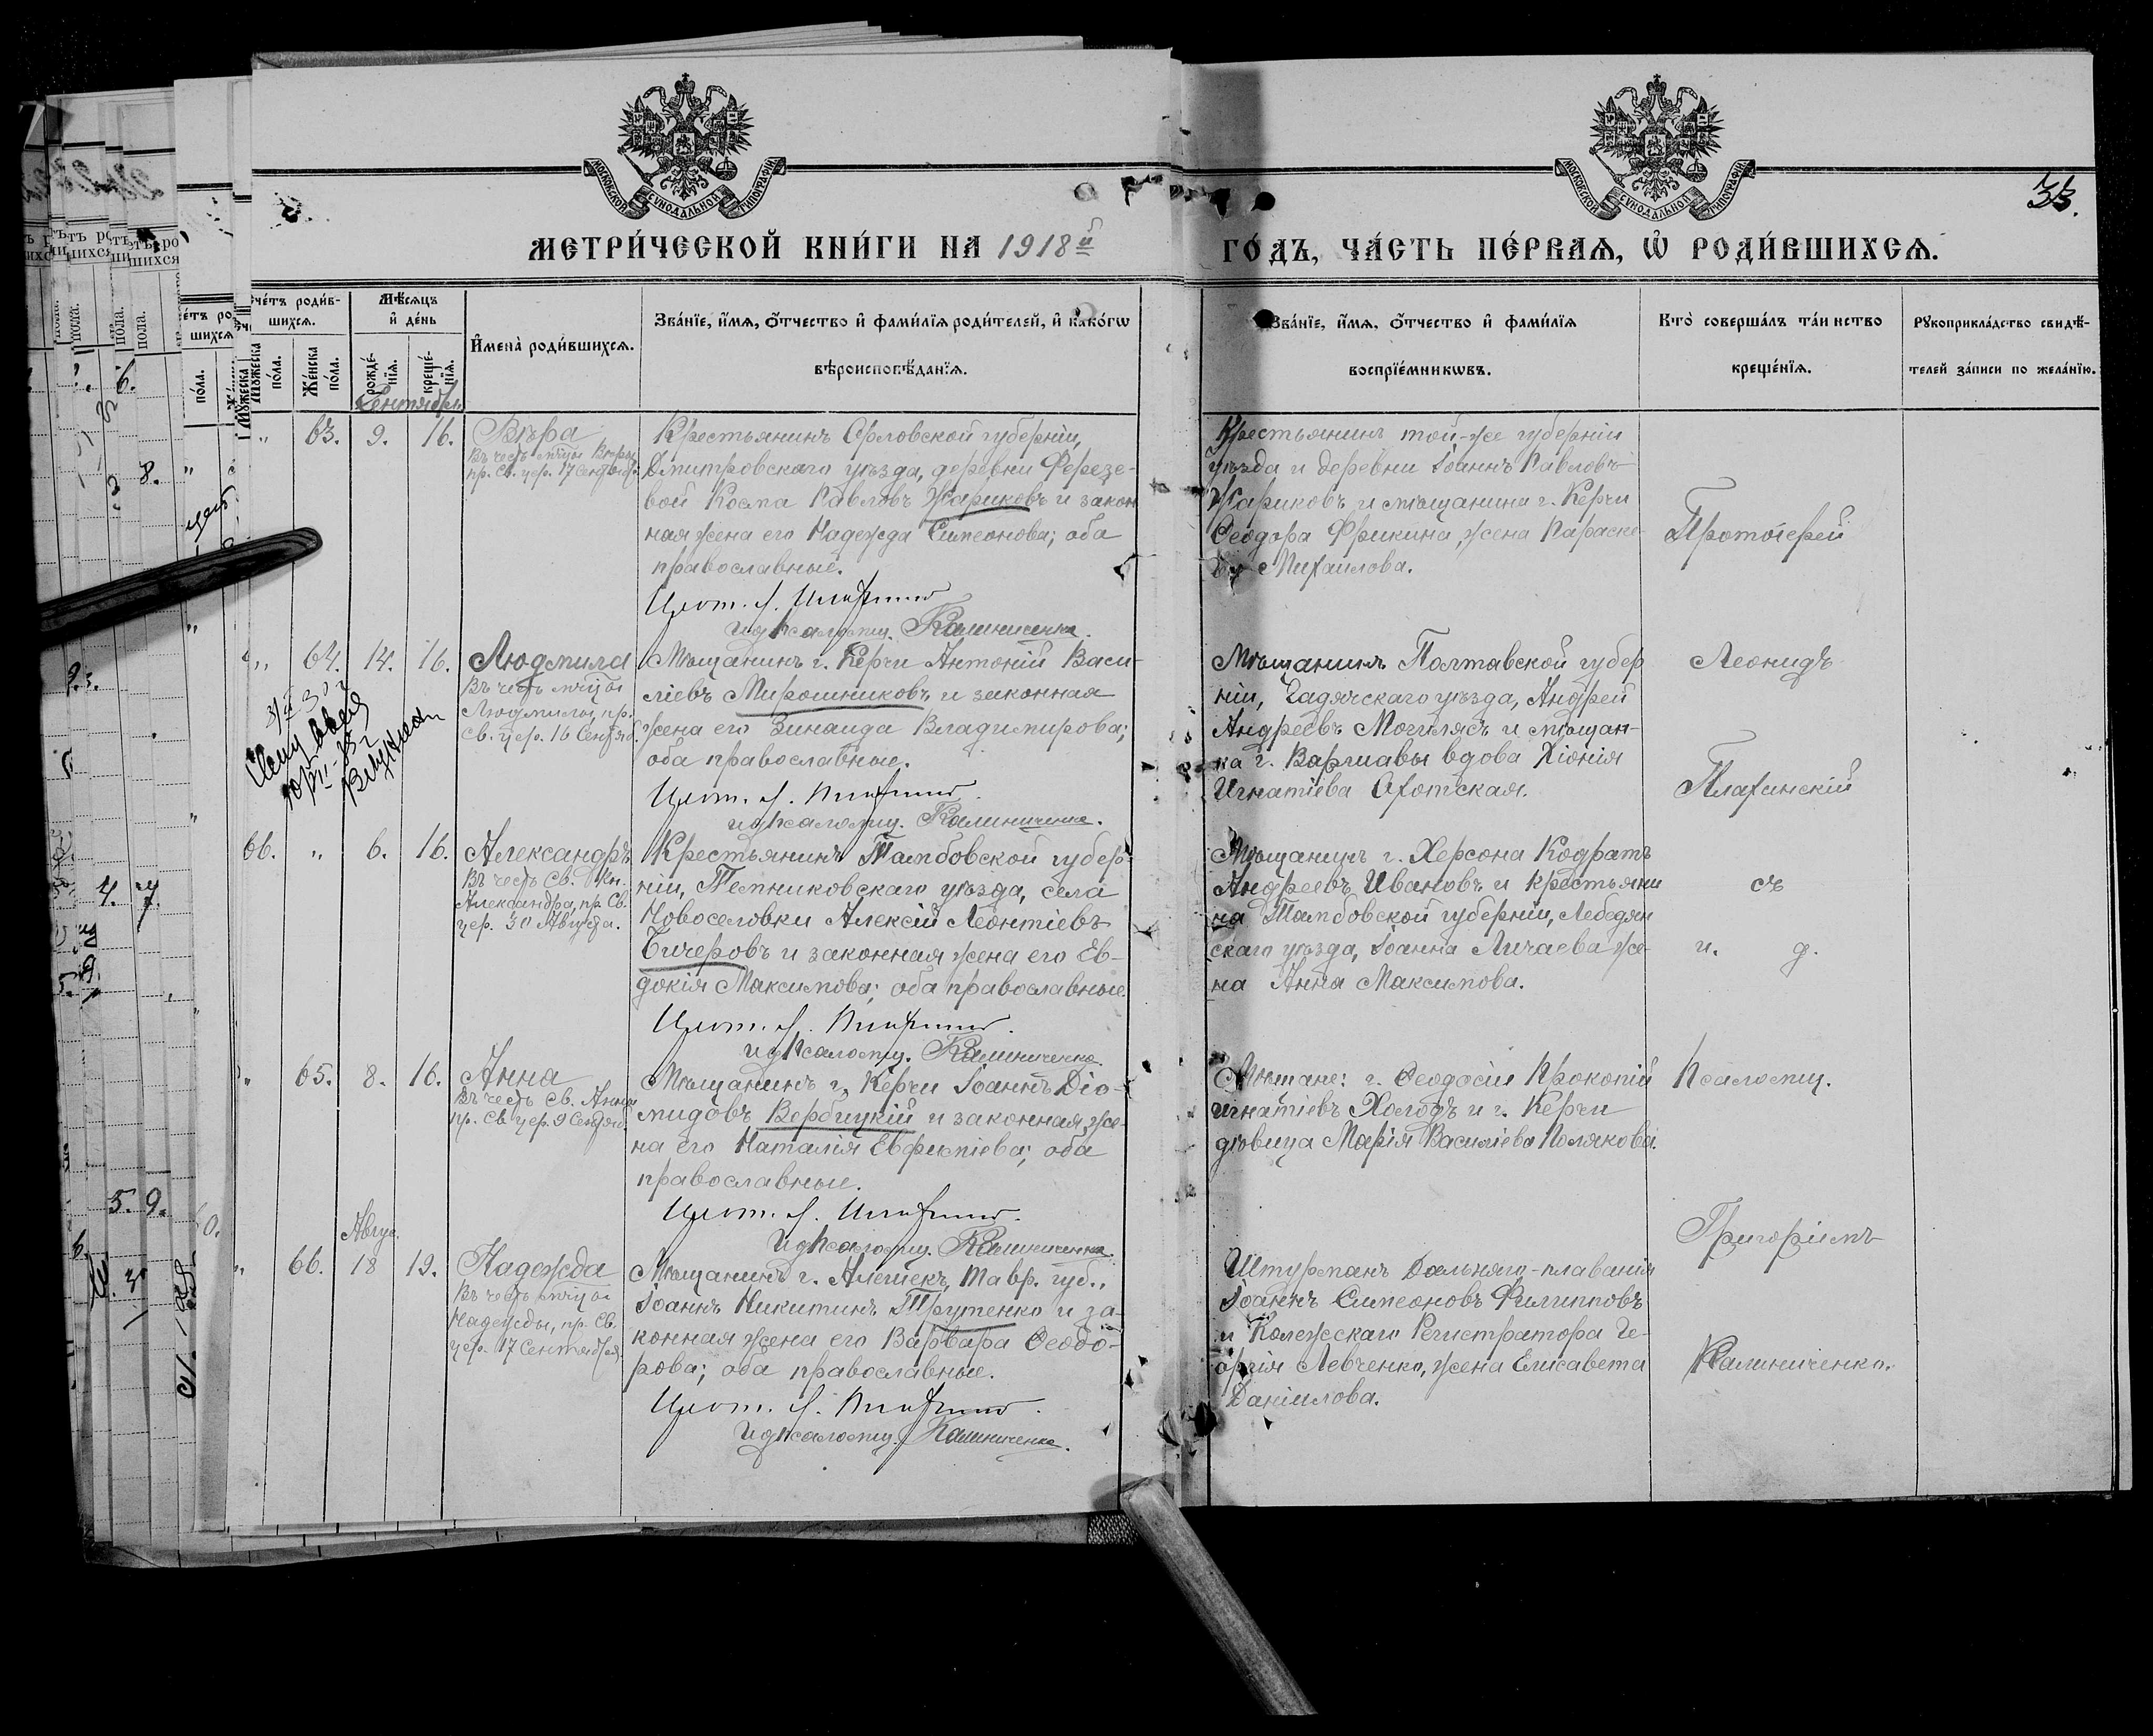 МОСКОВСКОЙ СѴНОДАЛЬНОЙ ТИПОГРАФІИ
МОСКОВСКОЙ СѴНОДАЛЬНОЙ ТИПОГРАФІИ
33.
МЕТРИ́ЧЕСКОЙ КНИ́ГИ НА 1918й
ГО́ДЪ, ЧА́СТЬ ПЕ́РВАѦ, Ѡ҆ РОДИ́ВШИХСѦ.
счéтъ роди́в-
шихся.
Мѣ́сяцъ
и҆ де́нь
Мꙋжеска
по́ла.
Же́нска
по́ла.
рожде́-
нїя.
креще́-
нїя.
И҆мена̀ роди́вшихся.
Зва́нїе, и҆́мя, ѻ҆́тчество и҆ фами́лїя роди́телей, и҆ како́гѡ
вѣроисповѣ́данїя.
Зва́нїе, и҆́мя, ѻ҆́тчество и҆ фами́лїя
воспрїе́мникѡвъ.
Кто̀ соверша́лъ та́инство
креще́нїя.
Рꙋкоприкла́дство свидѣ́-
телей за́писи по жела́нїю.
Сентябрь
„ 63. 9. 16. Вѣра
Въ честь мчцы Вѣры,
пр. Св. цер. 17 Сентября.
Крестьянинъ Орловской губерніи,
Дмитровскаго уѣзда, деревни Ферезе-
вой Косма Павловъ Жариковъ и закон
ная жена его Надежда Симеонова; оба
православные.
Прот. Л.
и д псаломщ. Калиниченко.
Крестьянинъ той-же губерніи
уѣзда и деревни Іоаннъ Павловъ
Жариковъ и мѣщанина г. Керчи
Ѳеодора Фрикина, жена Параске-
ва Михаилова.
Протоіерей
„ 64. 14. 16. Людмила
Въ честь мчцы
Людмилы, пр.
Св. цер. 16 Сентяб.
Мѣщанинъ г. Керчи Антоній Васи-
ліевъ Мирошниковъ и законная
жена его Зинаида Владимирова;
оба православные.
Прот. Л.
и д псаломщ. Калиниченко.
Мѣщанинъ Полтавской губер
ніи, Гадячскаго уѣзда, Андрей
Андреевъ Могилясъ и мѣщан-
ка г. Варшавы вдова Хіонія
Игнатіева Охотская.
Леонидъ
Плахинскій
66. „ 6. 16. Александръ
Въ честь Св. Кн.
Александра, пр. Св.
цер. 30 Августа.
Крестьянинъ Тамбовской губер-
ніи, Темниковскаго уѣзда, села
Новоселовки Алексій Леонтіевъ
Бичеровъ и законная жена его Ев-
докія Максимова; оба православные.
Прот. Л.
и д псаломщ. Калиниченко.
Мѣщанинъ г. Херсона Кодратъ
Андреевъ Ивановъ и крестьяни
на Тамбовской губерніи, Лебедян
скаго уѣзда, Іоанна Личаева же-
на Анна Максимова.
съ
и. д.
„ 65. 8. 16. Анна
Въ честь Св. Анны
пр. Св. цер. 9 Сентяб.
Мѣщанинъ г. Керчи Іоаннъ Діо-
мидовъ Вербицкій и законная же-
на его Наталія Евфиміева; оба
православные.
Прот. Л.
и д псаломщ. Калиниченко.
Мѣщане: г. Ѳеодосіи Прокопій
Игнатіевъ Холодъ и г. Керчи
дѣвица Марія Василіева Полякова.
Псаломщ.
Григоріемъ
Авгус.
„ 66. 18 19. Надежда
Въ честь мчцы
Надежды, пр. Св.
цер. 17 Сентября.
Мѣщанинъ г. Алешекъ, Тавр. губ.,
Іоаннъ Никитинъ Трутенко и за-
конная жена его Варвара Ѳеодо-
рова; оба православные.
Прот. Л.
и д псаломщ. Калиниченко.
Штурманъ Дальняго-плаванія
Іоаннъ Симеоновъ Филипповъ
и Колежскаго Регистратора Ге-
оргія Левченко, жена Елисавета
Даніилова.
Калиниченко.